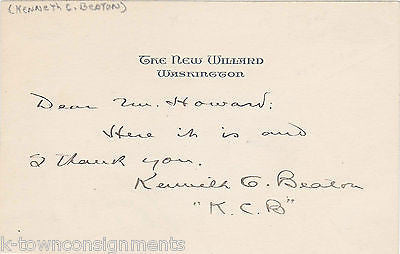 (KENNETH C. BEATON)
The New Willard
Washington
Dear Mr. Howard:
Here it is and
I thank you.
Kenneth C. Beaton
"K.C.B"
k-townconsignments